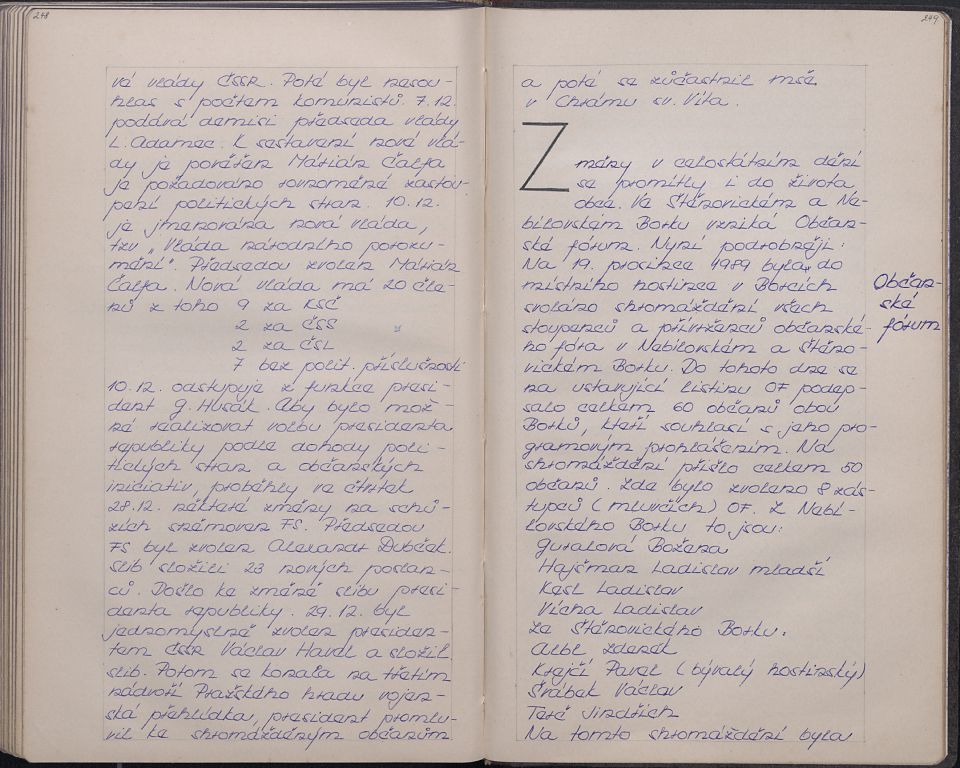 248
vé vlády ČSSR. Poté byl nesou-
hlas s počtem komunistů. 7.12.
poddvá demisi předseda vlády
L. Adamec. K sestavení nové vlá-
dy je pověřen Marián Čalfa
je požadováno rovnoměrné zastou-
pení politických stran. 10.12.
je jmenována nová vláda,
tzv „Vláda národního porozu-
mění". Předsedou zvolen Marián
Čalfa. Nová vláda má 20 čle-
nů z toho 9 za KSČ
2 za ČSS
2 za ČSL
7 bez polit. příslušnosti
10.12. odstupuje z funkce presi-
dent G. Husák. Aby bylo mož-
né realizovat volbu presidenta
republiky podle dohody poli-
tických stran a občanských
iniciativ, proběhly ve čtvrtek
28.12. některé změny na schů-
zích sněmoven FS. Předsedou
FS byl zvolen Alexandr Dubček.
Slib složili 23 nových poslan-
ců. Došlo ke změně slibu presi-
denta republiky. 29.12. byl
jednomyslně zvolen presiden-
tem ČSSR Václav Havel a složil
slib. Potom se konala na třetím
nádvoří Pražského hradu vojen-
ská přehlídka, president promlu-
vil ke shromážděným občanům
249
a poté se zúčastnil mše
v Chrámu sv. Víta.
Změny v celostátním dění
se promítly i do života
obce. Ve Štěnovickém a Ne-
bílovském Borku vzniká Občan-
ské fórum. Nyní podrobněji:
Na 19. prosince 1989 byla do
místního hostince v Borcích
svoláno shromáždění všech
stoupenců a přívrženců občanské-
ho fóra v Nebílovském a Štěno-
vickém Borku. Do tohoto dne se
na ustavující listinu OF podep-
salo celkem 60 občanů obou
Borků, kteří souhlasí s jeho pro-
gramovým prohlášením. Na
shromáždění přišlo celkem 50
občanů. Zde bylo zvoleno 8 zás-
tupců (mluvčích) OF. Z Nebí-
lovského Borku to jsou:
Guralová Božena
Hajšman Ladislav mladší
Kesl Ladislav
Vícha Ladislav
Ze Štěnovického Borku:
Albl Zdenek
Krejčí Pavel (bývalý hostinský)
Švábek Václav
Terč Jindřich
Na tomto shromáždění byla
Občan-
ské
fórum